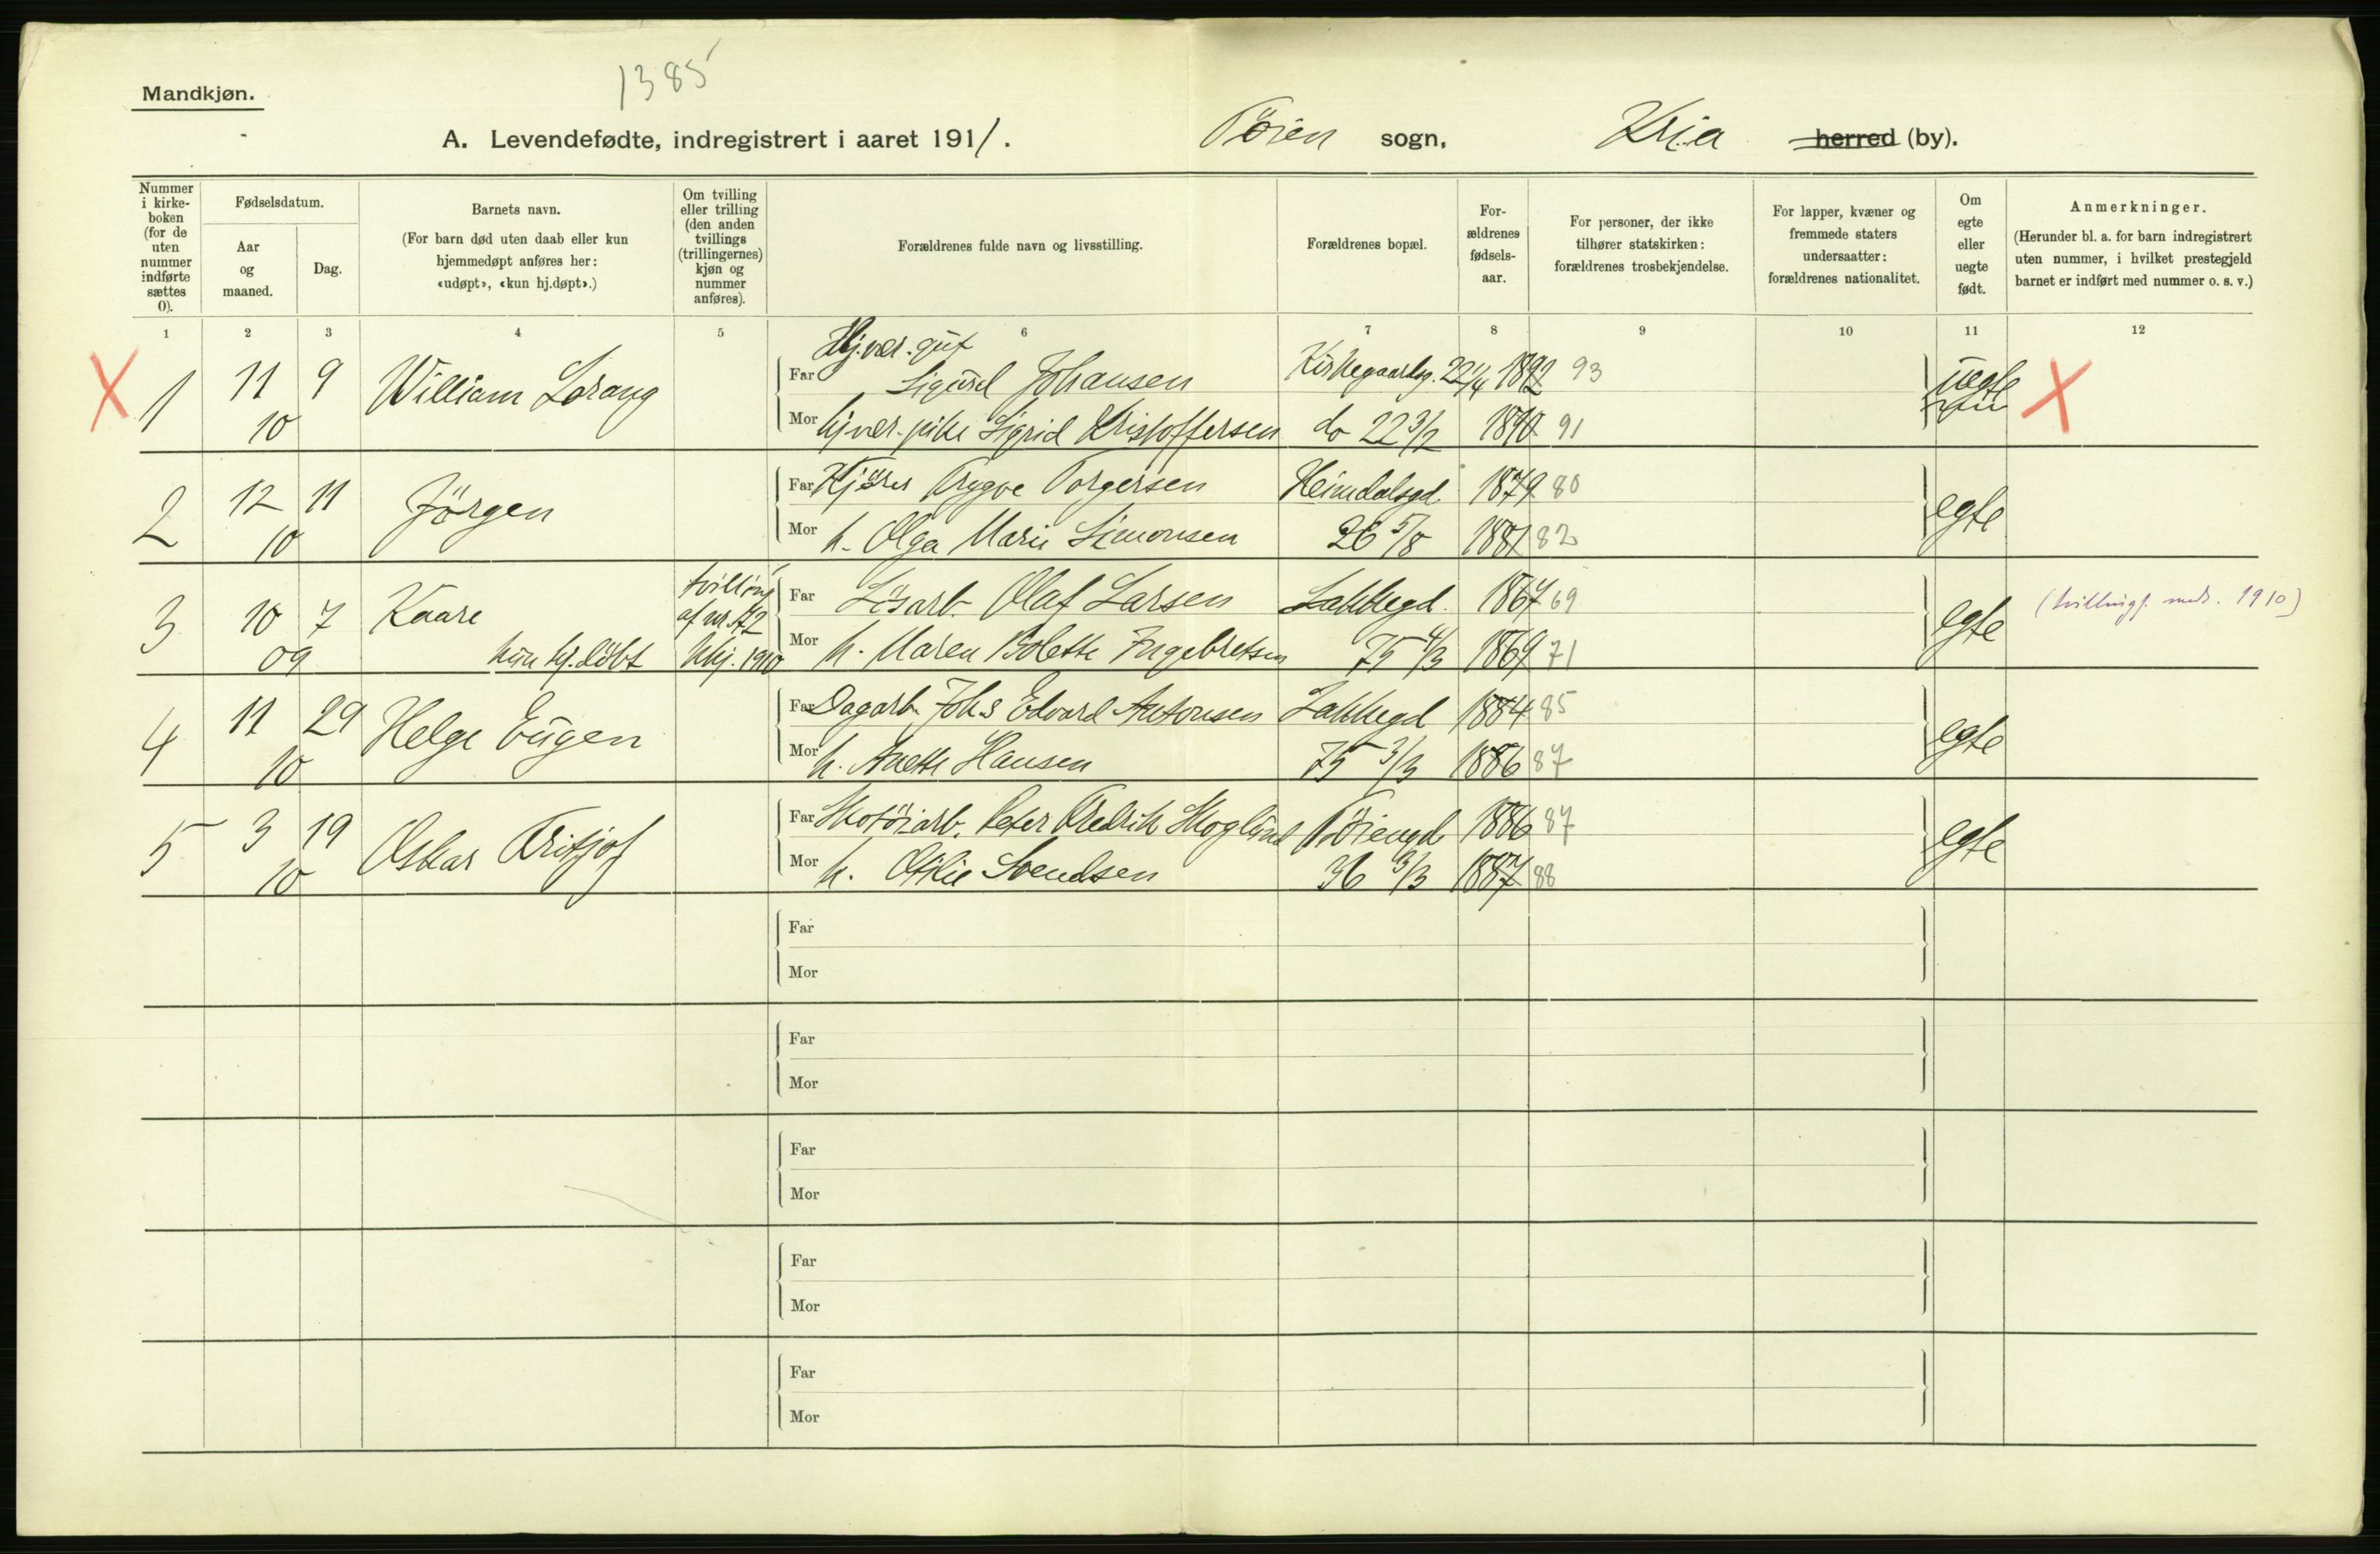 1385
Mandkjøn.
A. Levendefødte, indregistrert i aaret 1911. Tøien sogn, Kria herred (by).
Nummer i kirkeboken (for de uten nummer indførte sættes 0).
Fødselsdatum.
Aar og maaned.
Dag.
Barnets navn.
(For barn død uten daab eller kun hjemmedøpt anføres her: «udøpt», «kun hj.døpt».)
Om tvilling eller trilling (den anden tvillings (trillingernes) kjøn og nummer anføres).
Forældrenes fulde navn og livsstilling.
Forældrenes bopæl.
For-ældrenes fødsels-aar.
For personer, der ikke tilhører statskirken: forældrenes trosbekjendelse.
For lapper, kvæner og fremmede staters undersaatter: forældrenes nationalitet.
Om egte eller uegte født.
Anmerkninger.
(Herunder bl. a. for barn indregistrert uten nummer, i hvilket prestegjeld barnet er indført med nummer o. s. v.)
1 2 3 4 5 6 7 8 9 10 11 12
X 1 11 10 9 William Lorang uegte X
Far Hj.vær. gut Sigurd Johansen Kirkegaardsg. 22 1/4 1892 93
Mor hj.vær. pike Sigrid Kristoffersen do 22 3/2 1890 91
2 12 10 11 Jörgen egte
Far Kjörer Trygve Torgersen Heimdalsgd. 1879 80
Mor h. Olga Marie Simonsen 26 5/8 1881 82
3 10 09 7 Kaare kun hj. döbt tvilling af nr. 1910 egte (tvillingf. 1910)
Far Lösarb. Olaf Larsen Lakkegd. 1867 69
Mor h. Maren Bolette Ingebretsen 75 4/3 1869 71
4 11 10 29 Helge Eugen egte
Far Dagarb. Johs Edvard Antonsen Lakkegd 1884 85
Mor h. Anette Hansen 75 3/3 1886 87
5 3 10 19 Oskar Fritjof egte
Far Skotöiarb. Peter Fredrik Skoglund Töiengd 1886 87
Mor h. Otilie Svendsen 36 3/3 1887 88
Far
Mor
Far
Mor
Far
Mor
Far
Mor
Far
Mor